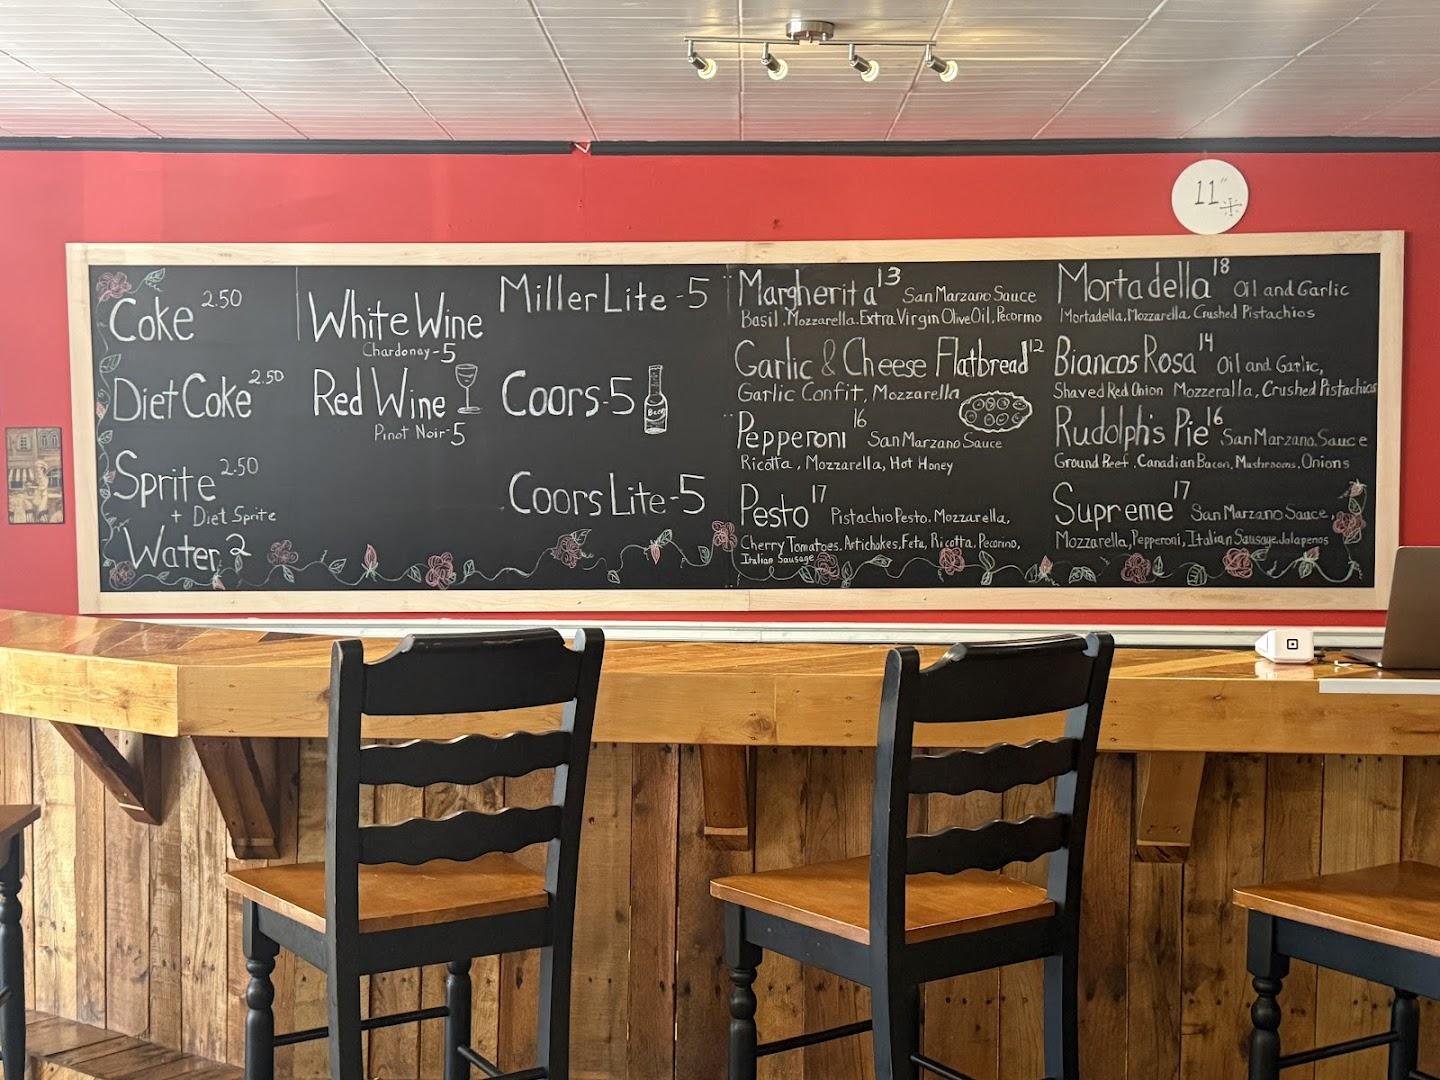 11"
Coke 2.50
Diet Coke 2.50
Sprite 2.50
+ Diet Sprite
Water 2
White Wine
Chardonay-5
Red Wine
Pinot Noir-5
Miller Lite-5
Coors-5
Beer
Coors Lite-5
Margherita 13 San Marzano Sauce
Basil, Mozzarella, Extra Virgin Olive Oil, Pecormo
Garlic & Cheese Flatbread 12
Garlic Confit, Mozzarella
Pepperoni 16 San Marzano Sauce
Ricotta, Mozzarella, Hot Honey
Pesto 17 Pistachio Pesto, Mozzarella,
Cherry Tomatoes, Artichokes, Feta, Ricotta, Pecorino,
Italian Sausage
Mortadella 18 Oil and Garlic
Mortadella, Mozzarella, Crushed Pistachios
Biancos Rosa 14 Oil and Garlic,
Shaved Red Onion Mozzeralla, Crushed Pistachios
Rudolph's Pie 16 San Marzano Sauce
Ground Beef, Canadian Bacon, Mushrooms, Onions
Supreme 17 San Marzano Sauce,
Mozzarella, Pepperoni, Italian Sausage, Jalapenos